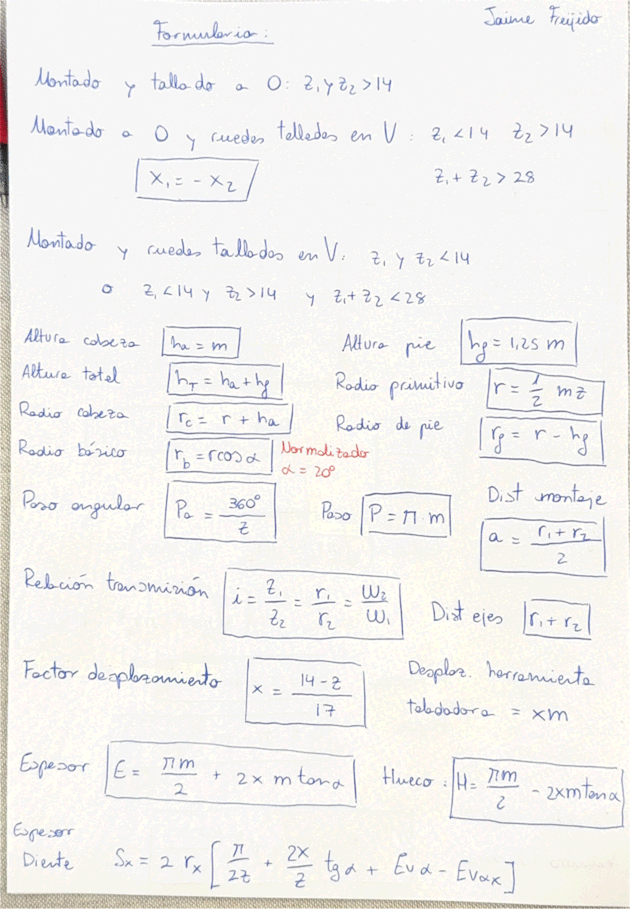 Jaime Freijido
Formulario:
Montado y tallado a 0: z₁ y z₂ > 14
Montado a 0 y ruedes tallades en V: z₁ < 14 z₂ > 14
x₁ = - x₂ z₁ + z₂ > 28
Montado y ruedes tallados en V: z₁ y z₂ < 14
o z₁ < 14 y z₂ > 14 y z₁ + z₂ < 28
Altura cabeza ha = m Altura pie hf = 1,25 m
Altura total hT = ha + hf Radio primitivo r = 1/2 mz
Radio cabeza rc = r + ha Radio de pie rf = r - hf
Radio básico rb = r cos α Normalizado
α = 20°
Paso angular Pa = 360°/z Paso P = π · m Dist montaje
a = (r₁ + r₂)/2
Relación transmisión i = z₁/z₂ = r₁/r₂ = ω₂/ω₁ Dist ejes r₁ + r₂
Factor desplazamiento x = (14 - z)/17 Desplaz. herramienta
talladadora = xm
Espesor E = πm/2 + 2x m tan α Hueco: H = πm/2 - 2xm tan α
Espesor
Diente Sx = 2 rx [π/2z + 2x/z tg α + Ev α - Ev αx]